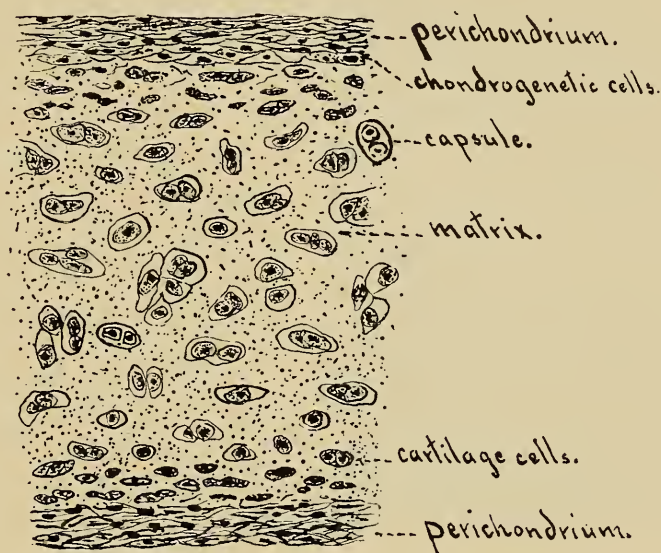 perichondrium.
chondrogenetic cells.
capsule.
matrix.
cartilage cells.
perichondrium.